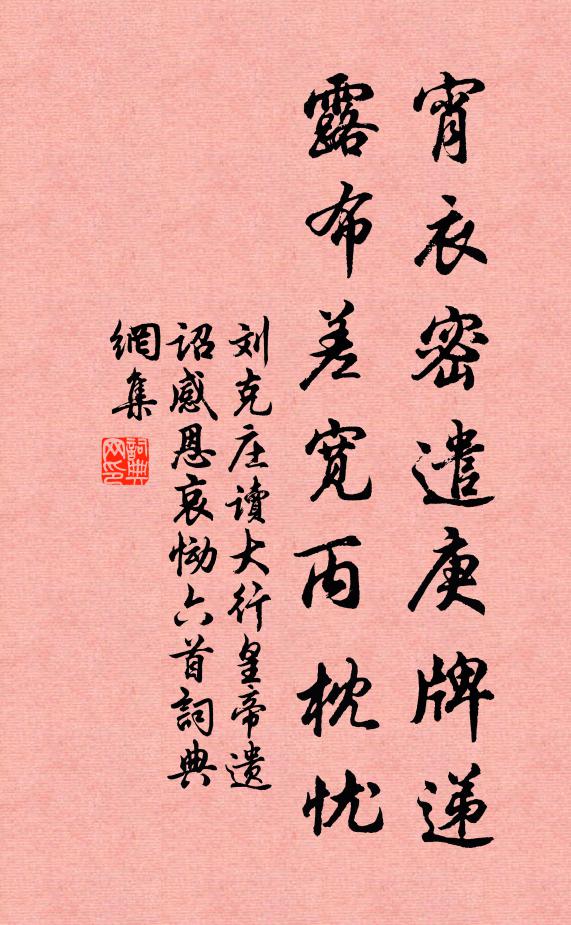 宵衣密遣庚牌递
露布差宽丙枕忧
刘克庄读大行皇帝遗
诏感恩哀恸六首詞典
網集
詞典网印